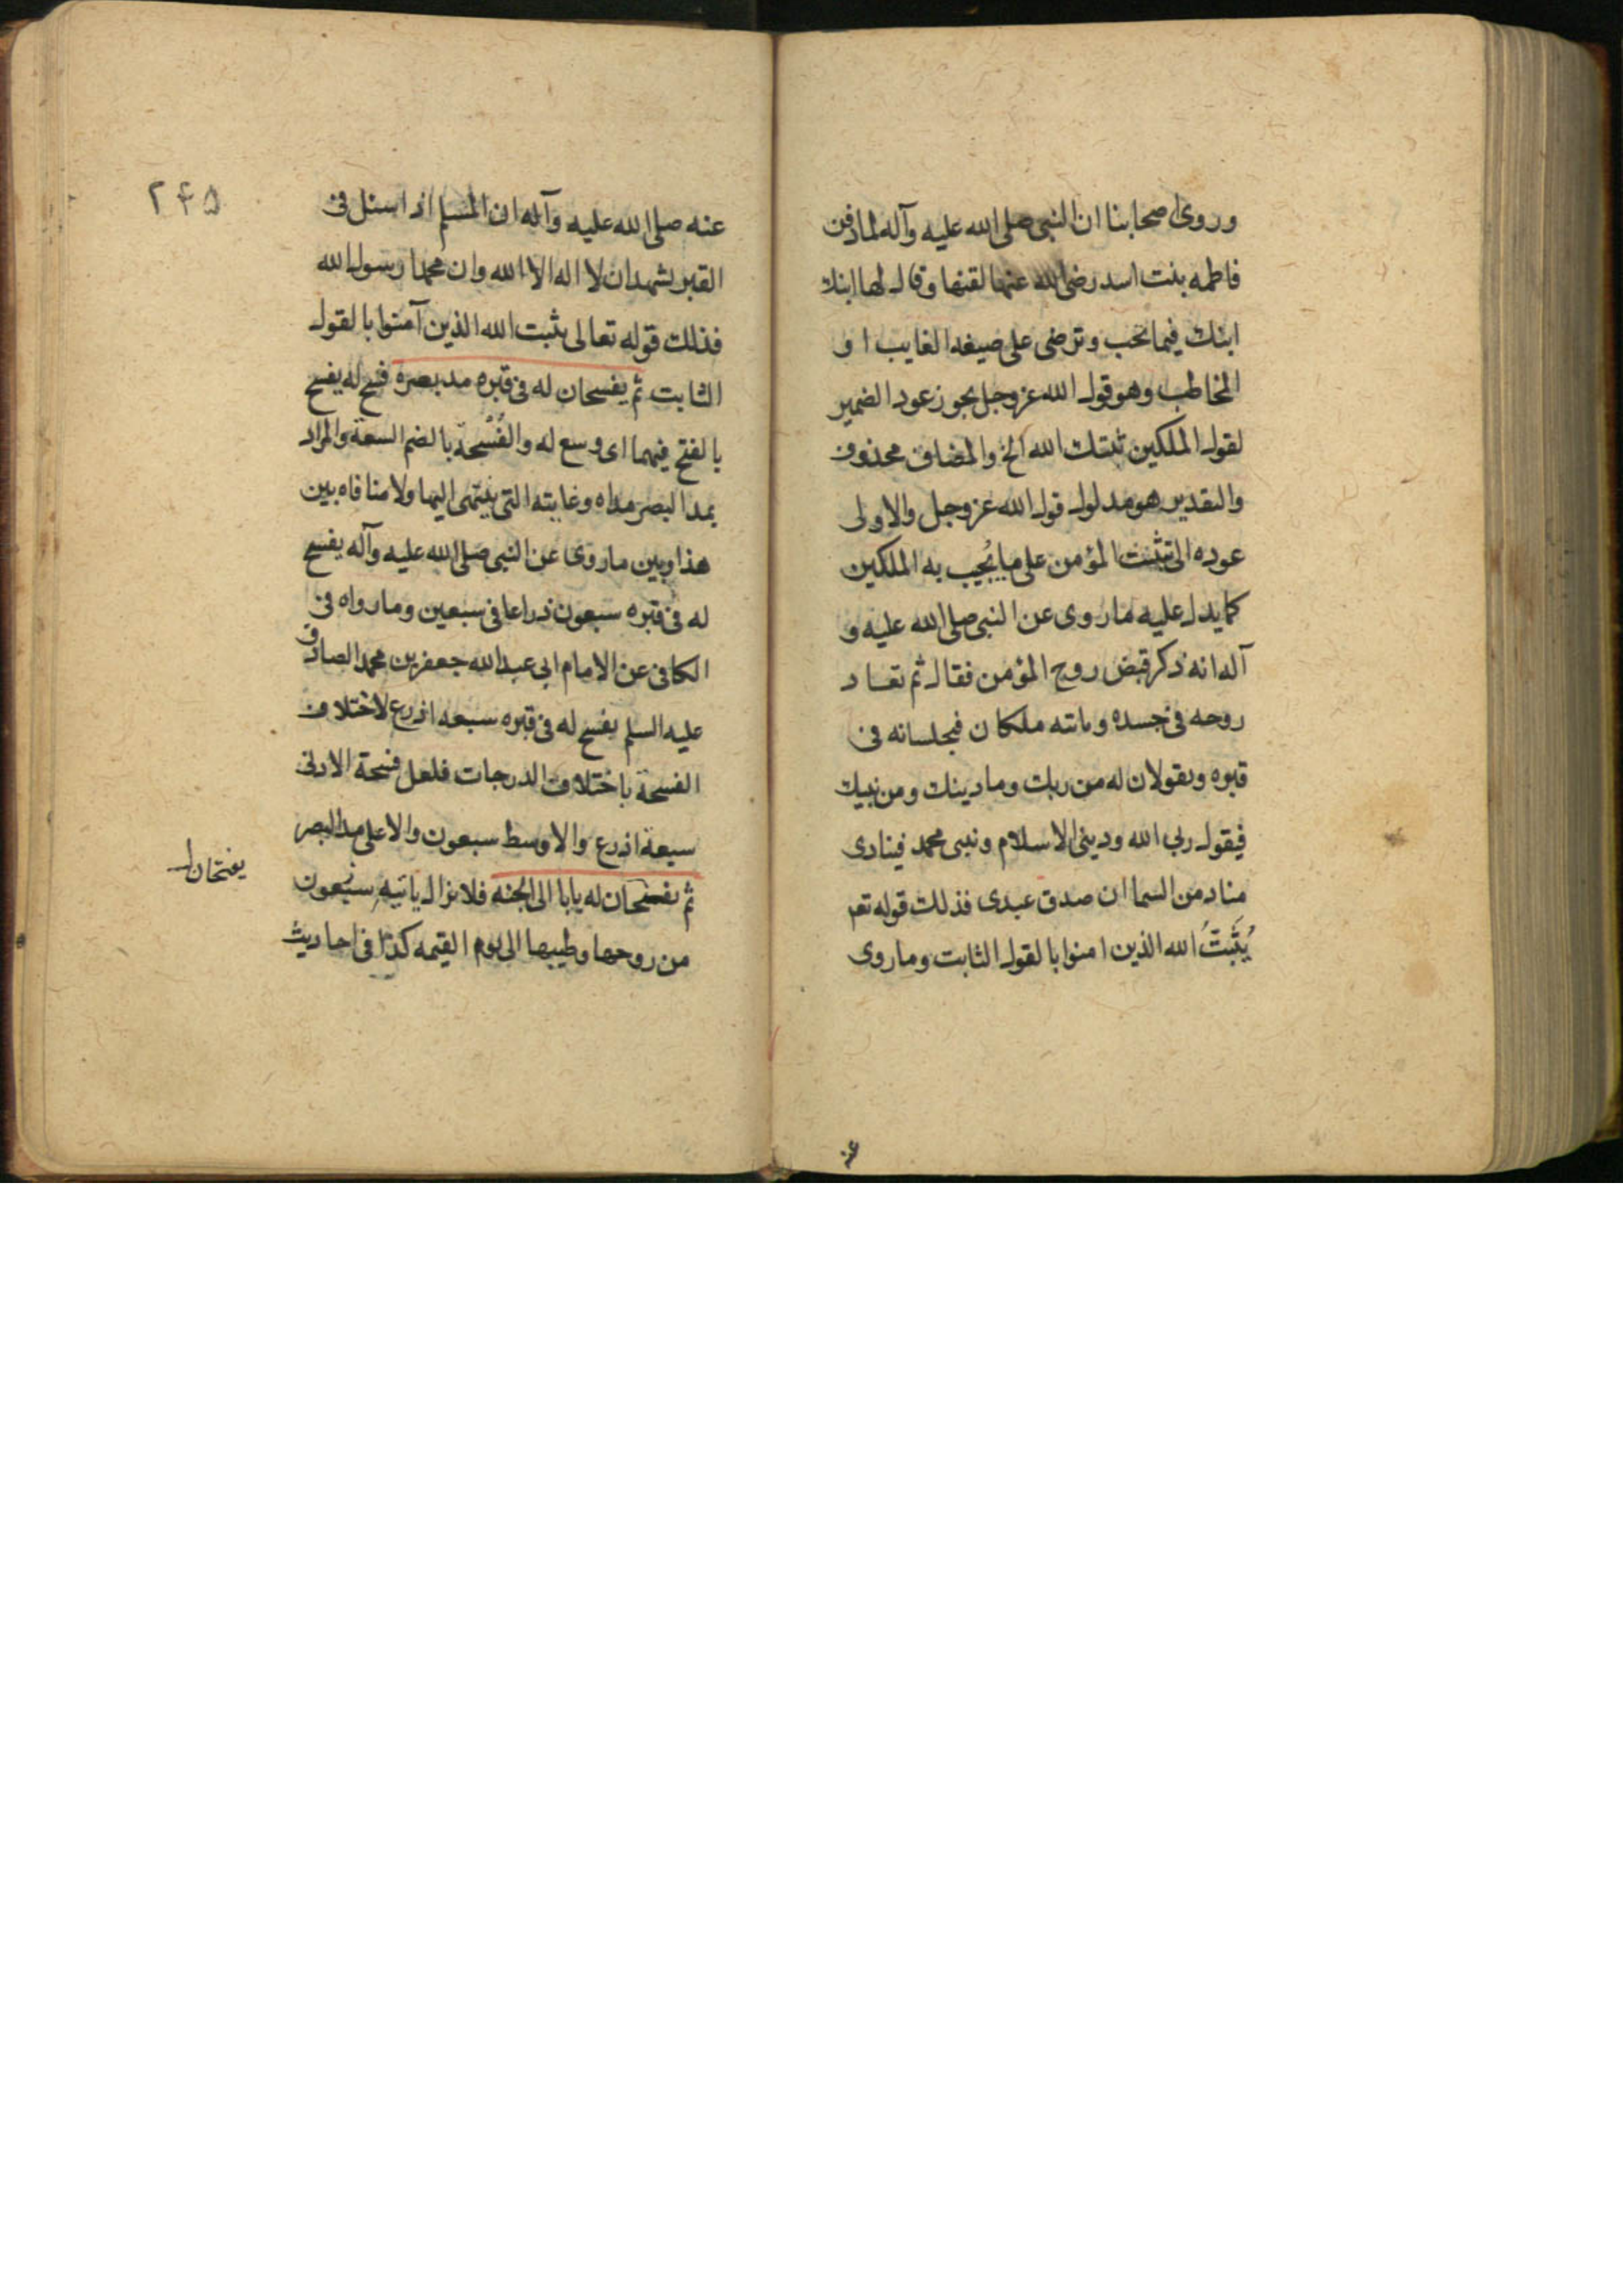 وروى اصحابنا ان النبى صلى الله عليه وآله لما دفن
فاطمه بنت اسد رضى الله عنها لقنها وقال لها ابنك
ابنك فيما تحب وترضى على صيغه الغايب او
المخاطب وهو قول الله عز وجل يجوز عود الضمير
لقول الملكين ثبتك الله الخ والمضاف محذوف
والتقدير هو مدلول قول الله عز وجل والاولى
عوده الى تثبت المؤمن على ما يُجيب به الملكين
كما يدل عليه ما روى عن النبى صلى الله عليه و
آله انه ذكر قبض روح المؤمن فقال ثم تعاد
روحه فى جسده وياتيه ملكان فيجلسانه فى
قبره ويقولان له من ربك وما دينك ومن نبيك
فيقول ربى الله ودينى الاسلام ونبى محمد فينادى
مناد من السما ان صدق عبدى فذلك قوله تعم
يُثَبِّتُ الله الذين امنوا بالقول الثابت وما روى
عنه
٢۴۵
عنه صلى الله عليه وآله ان المسلم اذا سئل فى
القبر يشهد ان لا اله الا الله وان محمدا رسول الله
فذلك قوله تعالى يثبت الله الذين آمنوا بالقول
الثابت ثم يفسحان له فى قبره مد بصره فسح له يفسح
بالفتح فيهما اى وسع له والفُسْحة بالضم السعة والمراد
بمد البصر مداه وغايته التى ينتهى اليها ولا منافاه بين
هذا وبين ما روى عن النبى صلى الله عليه وآله يفسح
له فى قبره سبعون ذراعا فى سبعين وما رواه فى
الكافى عن الامام ابى عبد الله جعفر بن محمد الصادق
عليه السلم يفسح له فى قبره سبعه اذرع لاختلاف
الفسحة باختلاف الدرجات فلعل فسحة الادنى
سبعة اذرع والاوسط سبعون والاعلى مد البصر
ثم يفسحان له بابا الى الجنه فلا يزال ياتيه
من روحها وطيبها الى يوم القيمه كذا فى احاديث
يفتحان